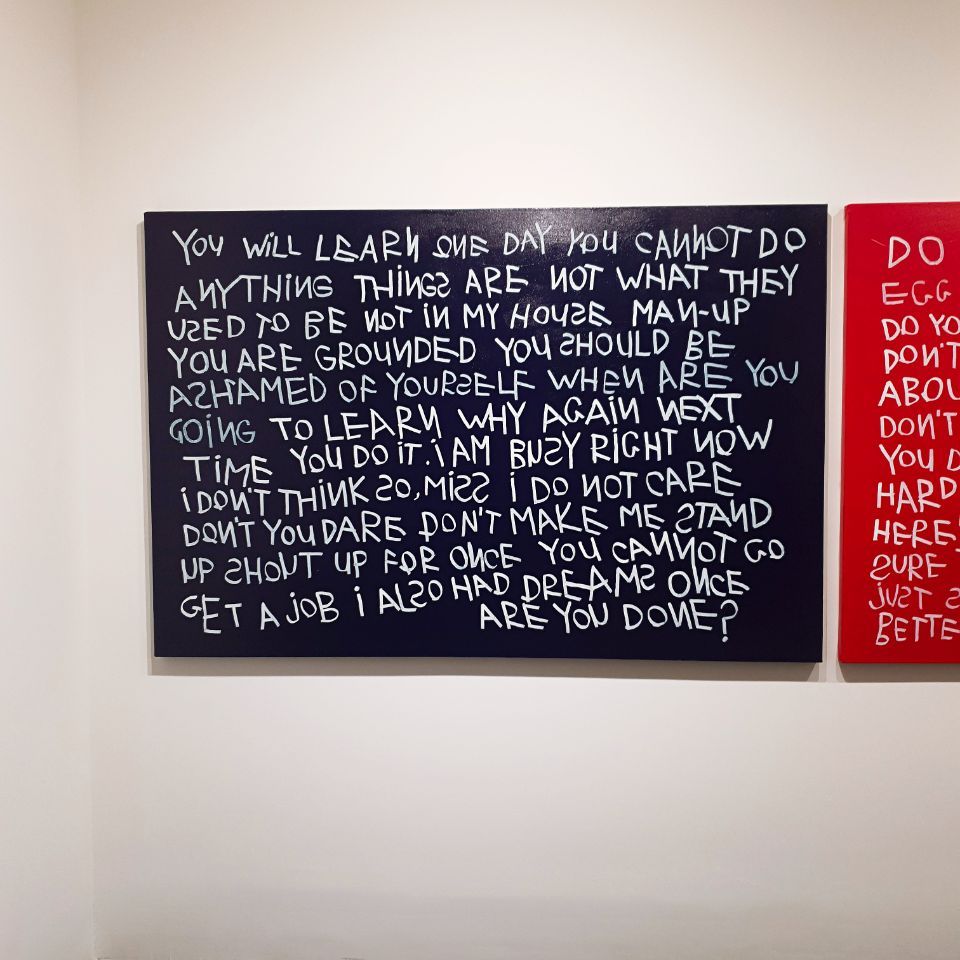 YOU WiLL LEARN ONE DAY YOU CANNOT DO
ANYTHiNG THiNGS ARE NOT WHAT THEY
USED TO BE NOT iN MY HOUSE MAN-UP
YOU ARE GROUNDED YOU SHOULD BE
ASHAMED OF YOURSELF WHEN ARE YOU
GOiNG TO LEARN WHY AGAiN NEXT
TiME YOU DO iT. i AM BUSY RiGHT NOW
i DON'T THiNK SO, MiSS i DO NOT CARE
DON'T YOU DARE DON'T MAKE ME STAND
UP SHOUT UP FOR ONCE YOU CANNOT GO
GET A jOB i ALSO HAD DREAMS ONCE
ARE YOU DONE?
DO
EGG
DO YO
DON'T
ABOU
DON'T
YOU D
HARD
HERE
SURE
jUST S
BETTE